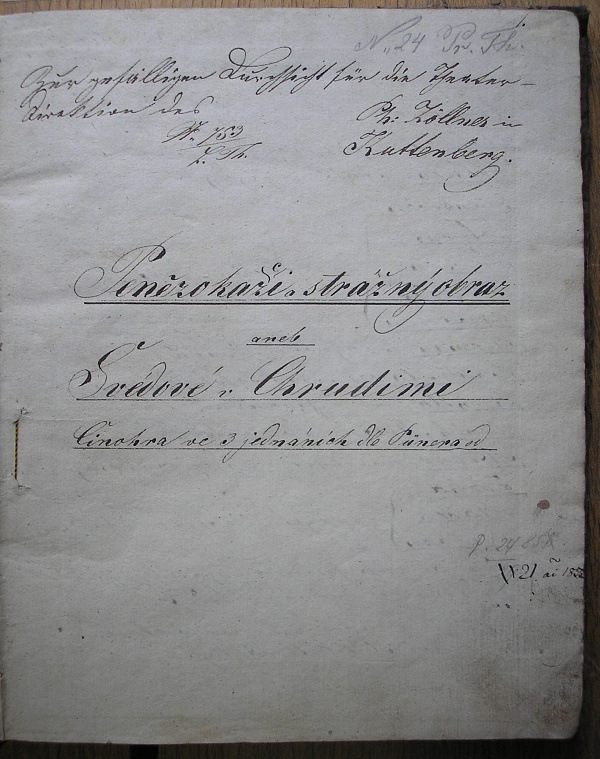 N. 24 Pr. Th.
Zur gefälligen Durchsicht für die Theater-
direktion des Ph: Zöllner in
N. 753 Kuttenberg.
Th.
Penězokaži a strážný obraz
aneb
Švédové v Chrudimi
Činohra ve 3 jednáních dle od
P. 24